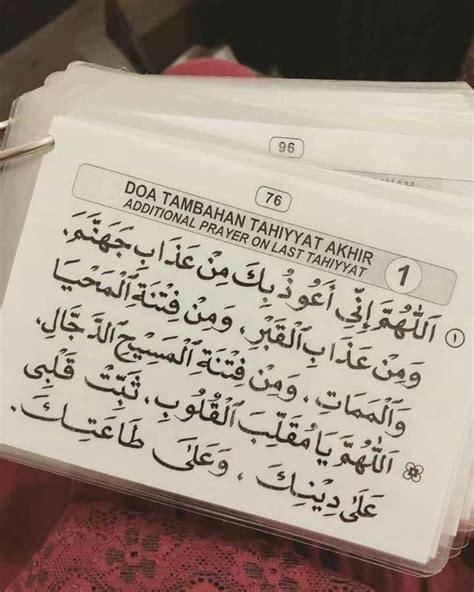 96
76
DOA TAMBAHAN TAHIYYAT AKHIR
ADDITIONAL PRAYER ON LAST TAHIYYAT
1
١ اَللّٰهُمَّ إِنِّي أَعُوْذُ بِكَ مِنْ عَذَابِ جَهَنَّمَ،
وَمِنْ عَذَابِ الْقَبْرِ، وَمِنْ فِتْنَةِ الْمَحْيَا
وَالْمَمَاتِ، وَمِنْ فِتْنَةِ الْمَسِيْحِ الدَّجَّالِ.
اَللّٰهُمَّ يَا مُقَلِّبَ الْقُلُوْبِ، ثَبِّتْ قَلْبِى
عَلَىٰ دِيْنِكَ، وَعَلَىٰ طَاعَتِكَ.